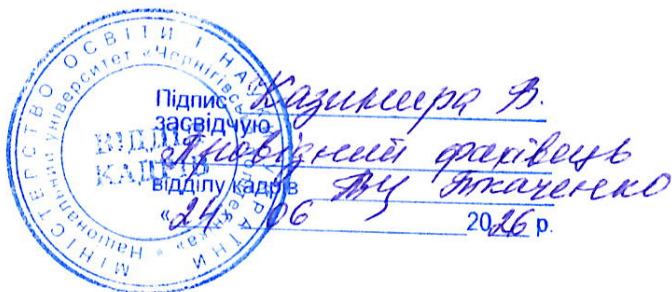 МІНІСТЕРСТВО ОСВІТИ І НАУКИ УКРАЇНИ
Національний університет «Чернігівська політехніка»
ВІДДІЛ
КАДРІВ
Підпис Казимира В.
засвідчую
Провідний фахівець
відділу кадрів Ткаченко
«24» 06 2026 р.